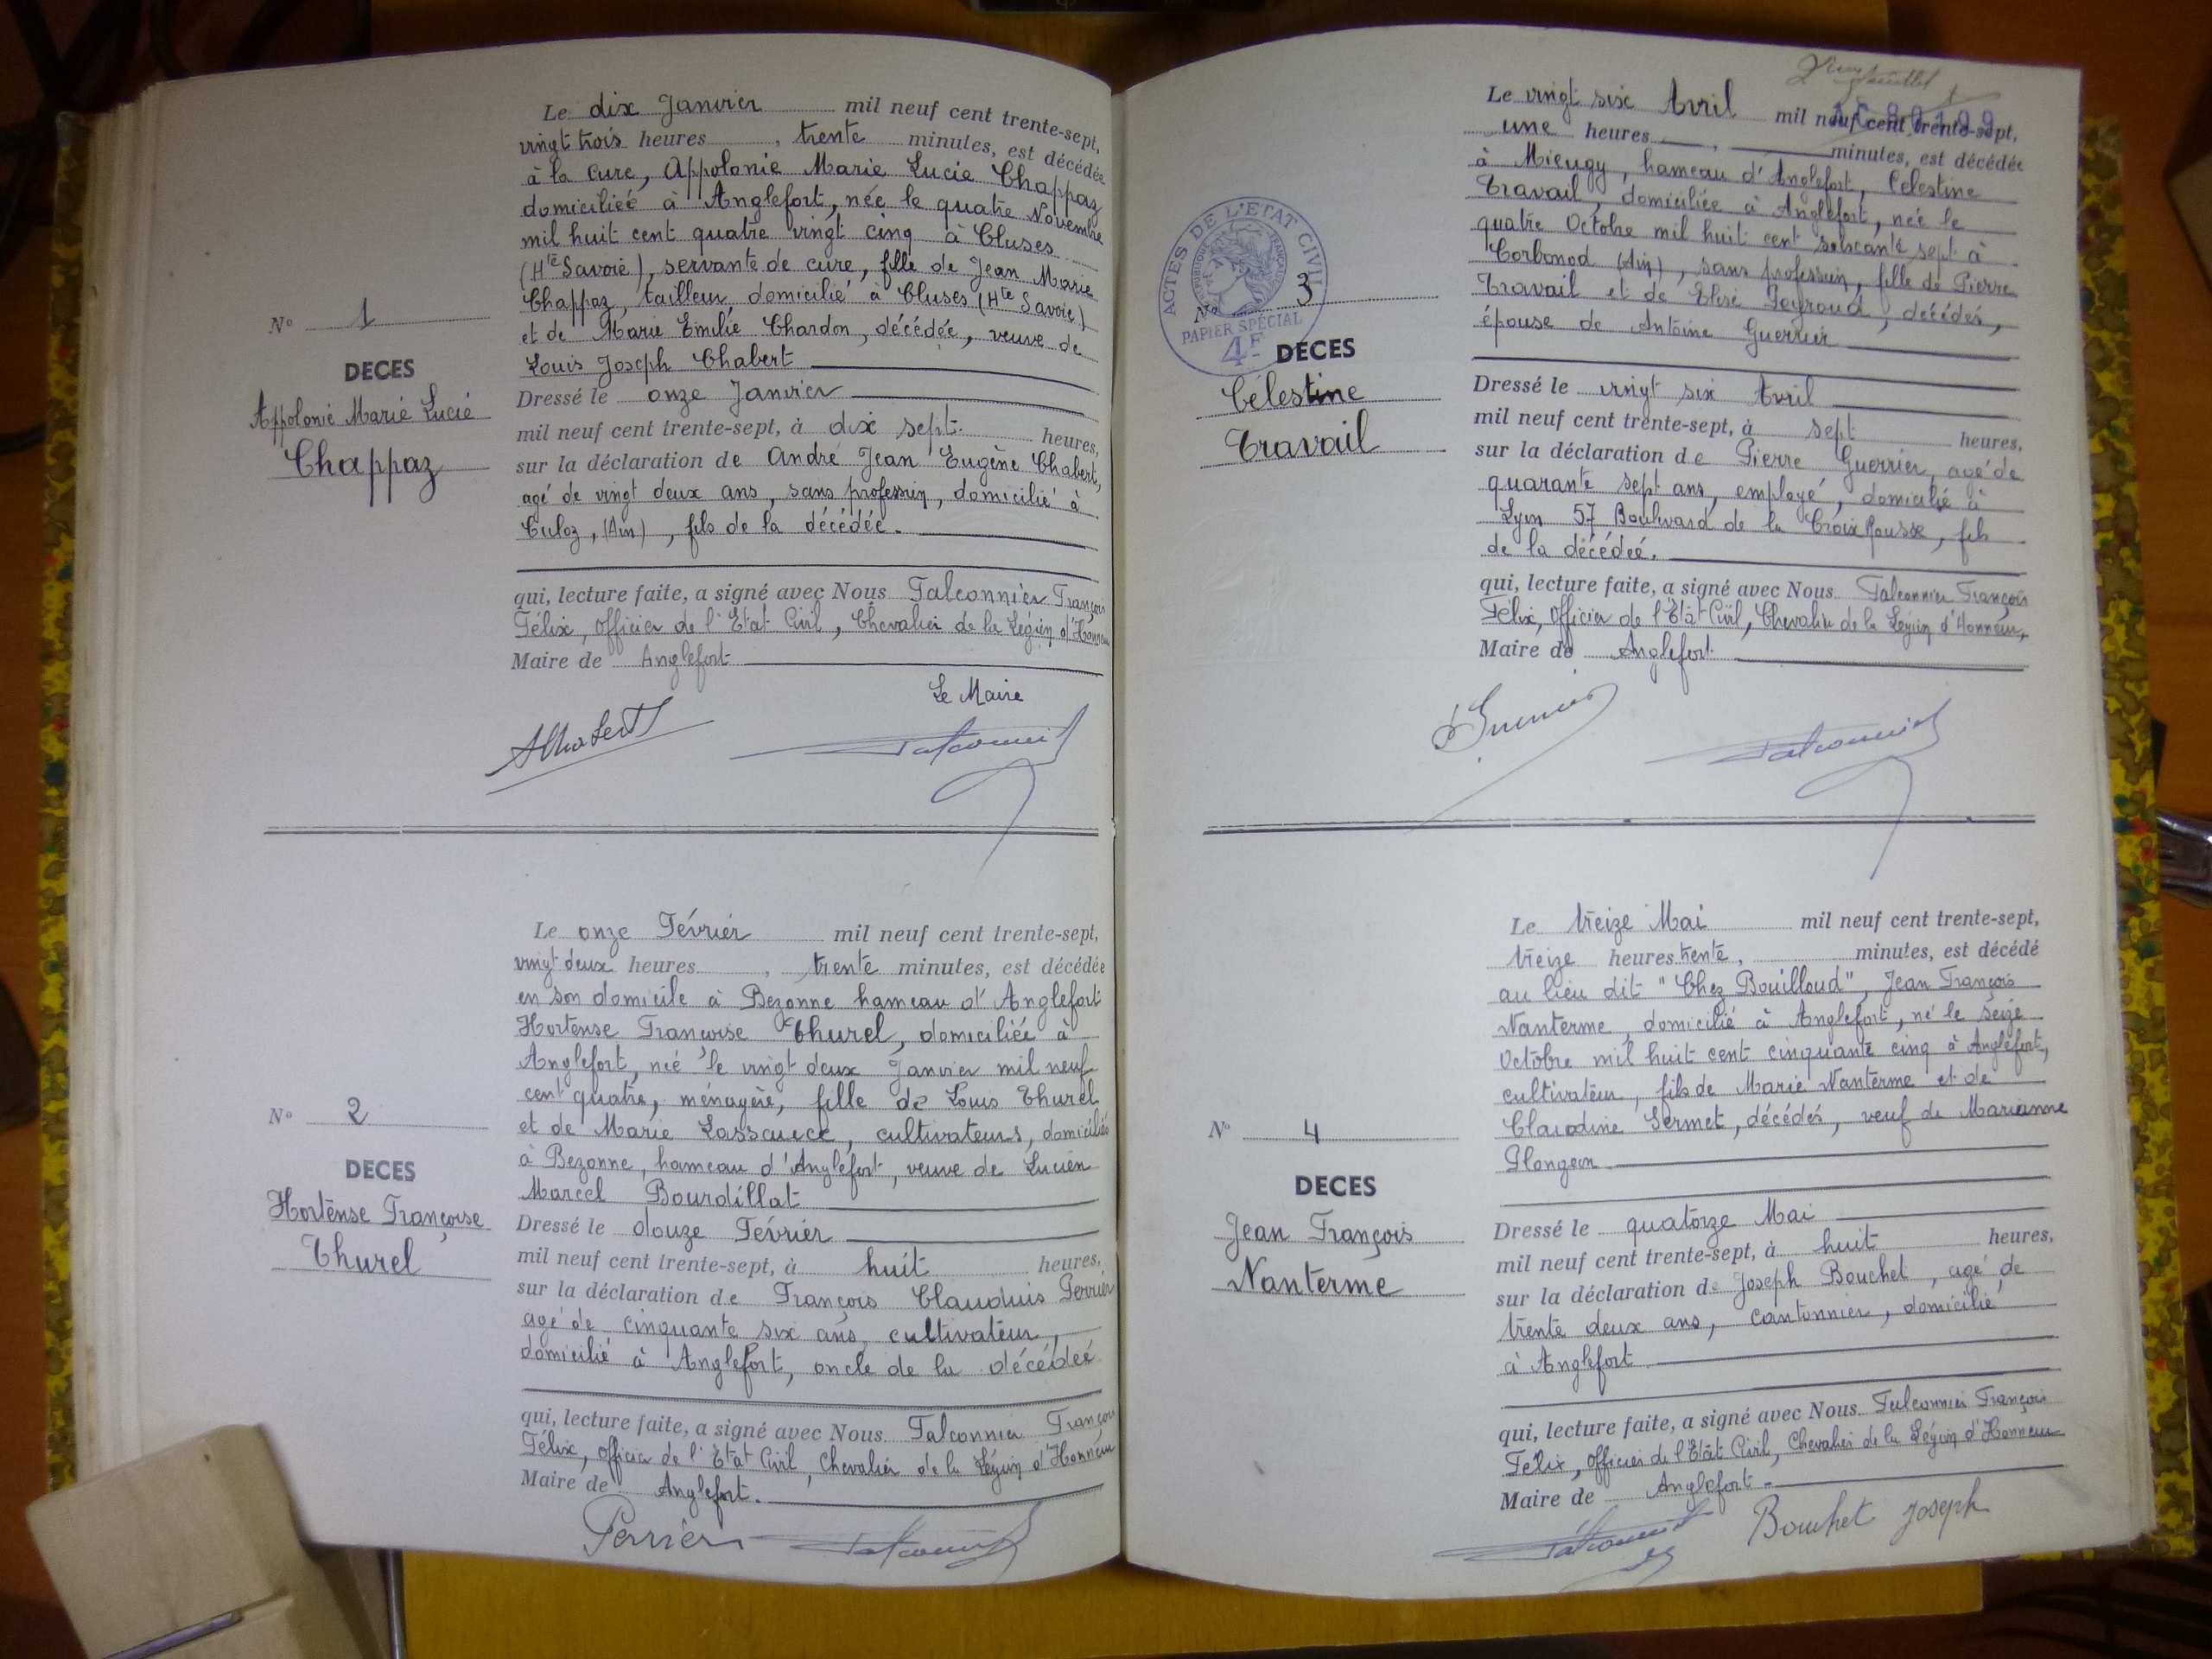 Le dix Janvier mil neuf cent trente-sept,
vingt trois heures , trente minutes, est décédée
à la cure, Appolonie Marie Lucie Chappaz
domiciliée à Anglefort, née le quatre Novembre
mil huit cent quatre vingt cinq à Cluses
(Hte Savoie), servante de cure, fille de Jean Marie
Chappaz, tailleur domicilié à Cluses (Hte Savoie)
et de Marie Emilie Chardon, décédée, veuve de
Louis Joseph Chabert
N° 1
DECES
Appolonie Marie Lucie
Chappaz
Dressé le onze Janvier
mil neuf cent trente-sept, à dix sept heures,
sur la déclaration de André Jean Eugène Chabert,
agé de vingt deux ans, sans profession, domicilié à
Culoz, (Ain), fils de la décédée.
qui, lecture faite, a signé avec Nous Falconnier François
Félix, Officier de l'Etat Civil, Chevalier de la Légion d'Honneur
Maire de Anglefort
Le Maire
AChabert
Falconnier
Le onze Février mil neuf cent trente-sept,
vingt deux heures , trente minutes, est décédée
en son domicile à Bezonne hameau d'Anglefort
Hortense Françoise Thurel, domiciliée à
Anglefort, née le vingt deux Janvier mil neuf
cent quatre, ménagère, fille de Louis Thurel
et de Marie Lassauece, cultivateurs, domiciliés
à Bezonne, hameau d'Anglefort, veuve de Lucien
Marcel Bourdillat
N° 2
DECES
Hortense Françoise
Thurel
Dressé le douze Février
mil neuf cent trente-sept, à huit heures,
sur la déclaration de François Claudius Perrier
agé de cinquante six ans, cultivateur,
domicilié à Anglefort, oncle de la décédée
qui, lecture faite, a signé avec Nous Falconnier François
Félix, Officier de l'Etat Civil, Chevalier de la Légion d'Honneur
Maire de Anglefort.
Perrier Falconnier
feuillet
Le vingt six Avril mil neuf cent trente-sept,
une heures , minutes, est décédée
à Mieugy, hameau d'Anglefort, Célestine
Travail, domiciliée à Anglefort, née le
quatre Octobre mil huit cent soixante sept à
Corbonod (Ain), sans profession, fille de Pierre
Travail et de Elise Peyroud, décédés,
épouse de Antoine Guerrier
ACTES DE L'ETAT CIVIL
REPUBLIQUE FRANÇAISE
PAPIER SPÉCIAL
4F
N° 3
DECES
Célestine
Travail
Dressé le vingt six Avril
mil neuf cent trente-sept, à sept heures,
sur la déclaration de Pierre Guerrier, agé de
quarante sept ans, employé, domicilié à
Lyon 57 Boulevard de la Croix Rousse, fils
de la décédée.
qui, lecture faite, a signé avec Nous Falconnier François
Félix, Officier de l'Etat Civil, Chevalier de la Légion d'Honneur,
Maire de Anglefort
Guerrier Falconnier
Le treize Mai mil neuf cent trente-sept,
treize heures trente, minutes, est décédé
au lieu dit "Chez Bouilloud", Jean François
Nanterme, domicilié à Anglefort, né le seize
Octobre mil huit cent cinquante cinq à Anglefort,
cultivateur, fils de Marie Nanterme et de
Claudine Sermet, décédés, veuf de Marianne
Plongeon
N° 4
DECES
Jean François
Nanterme
Dressé le quatorze Mai
mil neuf cent trente-sept, à huit heures,
sur la déclaration de Joseph Bouchet, agé de
trente deux ans, cantonnier, domicilié
à Anglefort
qui, lecture faite, a signé avec Nous Falconnier François
Félix, Officier de l'Etat Civil, Chevalier de la Légion d'Honneur
Maire de Anglefort
Falconnier Bouchet Joseph